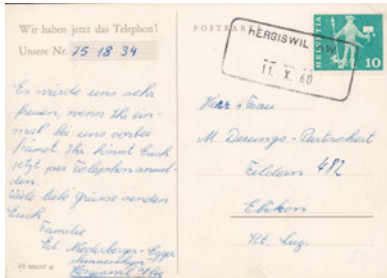 Wir haben jetzt das Telephon!
Unsere Nr. 75 18 34
Es würde uns sehr
freuen, wenn Ihr ein-
mal bei uns vorbei
kämet. Ihr könnt Euch
jetzt per Telephon anmel-
den.
Viele liebe Grüsse senden
Euch
Familie
Niederberger-Egger
Hergiswil
POSTKARTE
HERGISWIL
11. X. 60
HELVETIA
10
Herr + Frau
M. Derungs-
482
Ebikon
Kt. Luz.